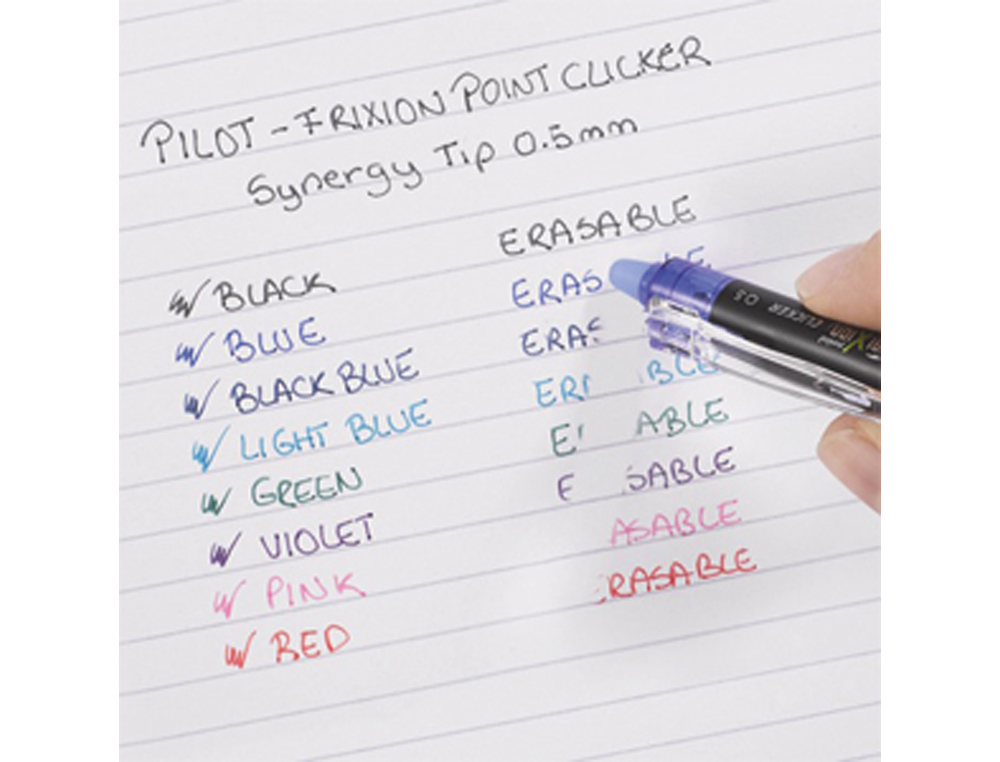 PILOT - FRIXION POINT CLICKER
Synergy Tip 0.5mm
ERASABLE
BLACK
ERAS LE
BLUE
ERAS
BLACK BLUE
ER BLE
LIGHT BLUE
E ABLE
GREEN
E SABLE
VIOLET
ASABLE
PINK
RASABLE
RED
CLICKER 0.5